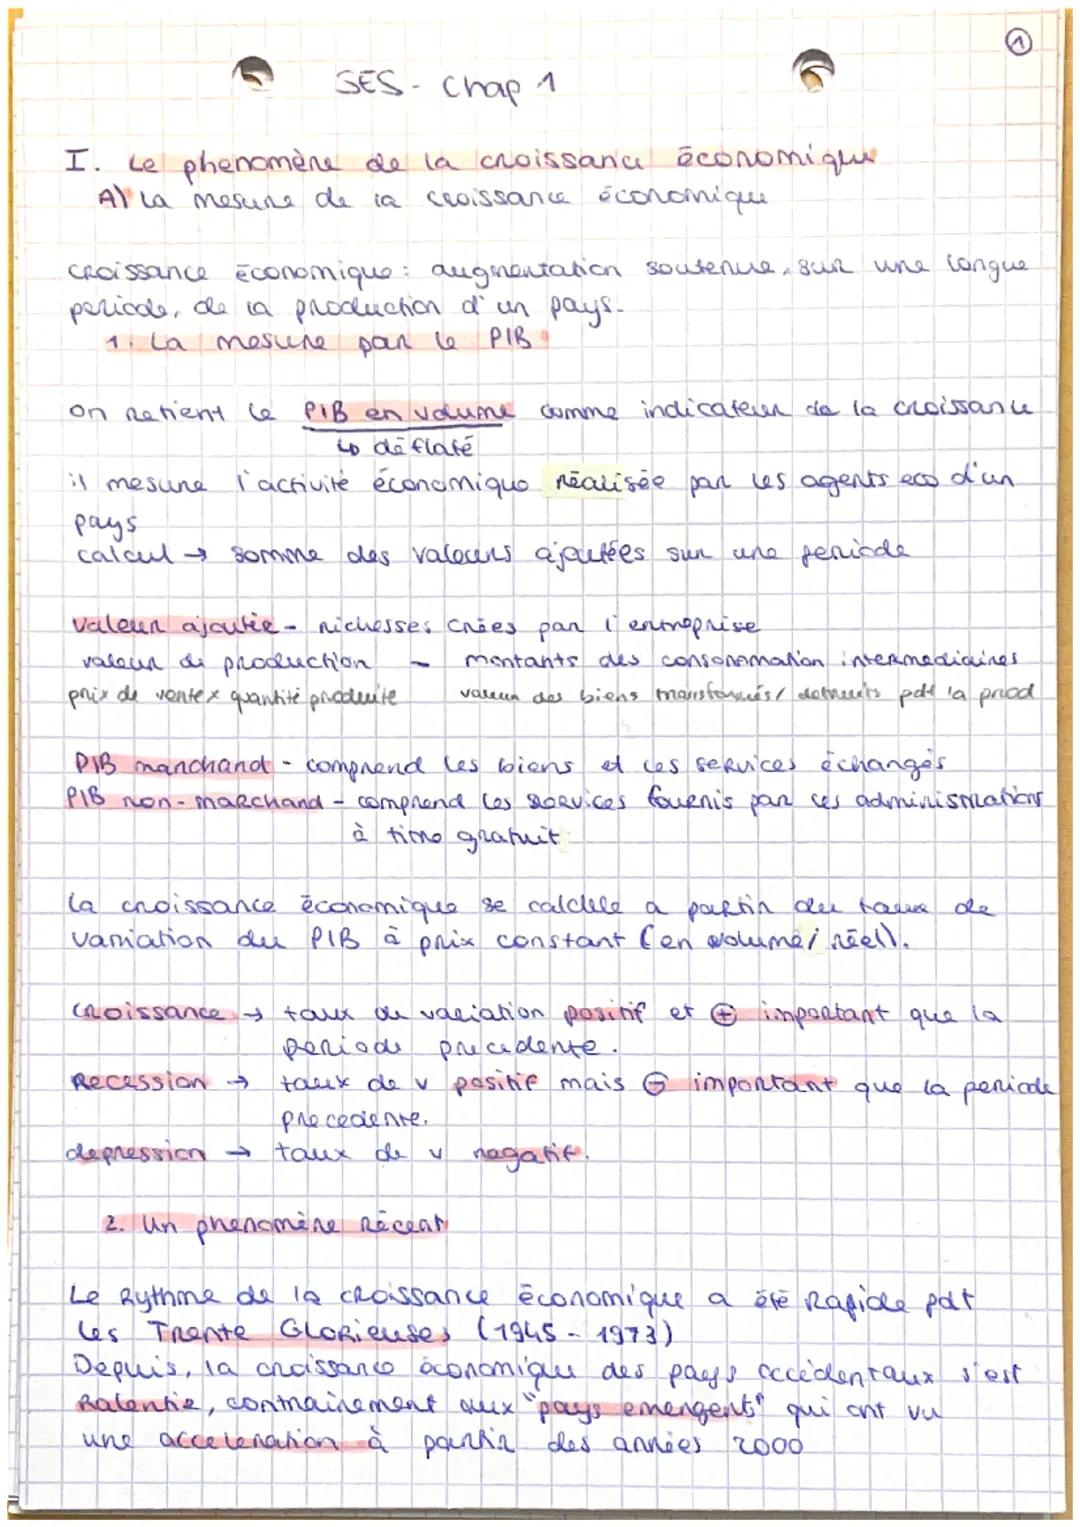 1
SES - Chap 1
I. Le phenomène de la croissance économique
A) La mesure de la croissance économique
croissance économique : augmentation soutenue, sur une longue
periode, de la production d'un pays.
1. La mesure par le PIB
on retient le PIB en volume comme indicateur de la croissance
↳ déflaté
il mesure l'activité économique réalisée par les agents eco d'un
pays
calcul → somme des valeurs ajoutées sur une periode
valeur ajoutée - richesses créés par l'entreprise
valeur de production - montants des consommation intermediaires
prix de vente x quantité produite valeur des biens transformés / detruits pdt la prod
PIB marchand - comprend les biens et les services échangés
PIB non-marchand - comprend les services fournis par les administrations
à titre gratuit
la croissance économique se calcule a partir du taux de
variation du PIB à prix constant (en volume / réel).
croissance → taux de variation positif et ⊕ important que la
periode precedente.
Recession → taux de v positif mais ⊖ important que la periode
precedente.
depression → taux de v negatif.
2. Un phenomène récent
Le Rythme de la croissance économique a été Rapide pdt
les Trente Glorieuses (1945 - 1973)
Depuis, la croissance économique des pays occidentaux s'est
Ralentie, contrairement aux "pays emergents" qui ont vu
une acceleration à partir des années 2000